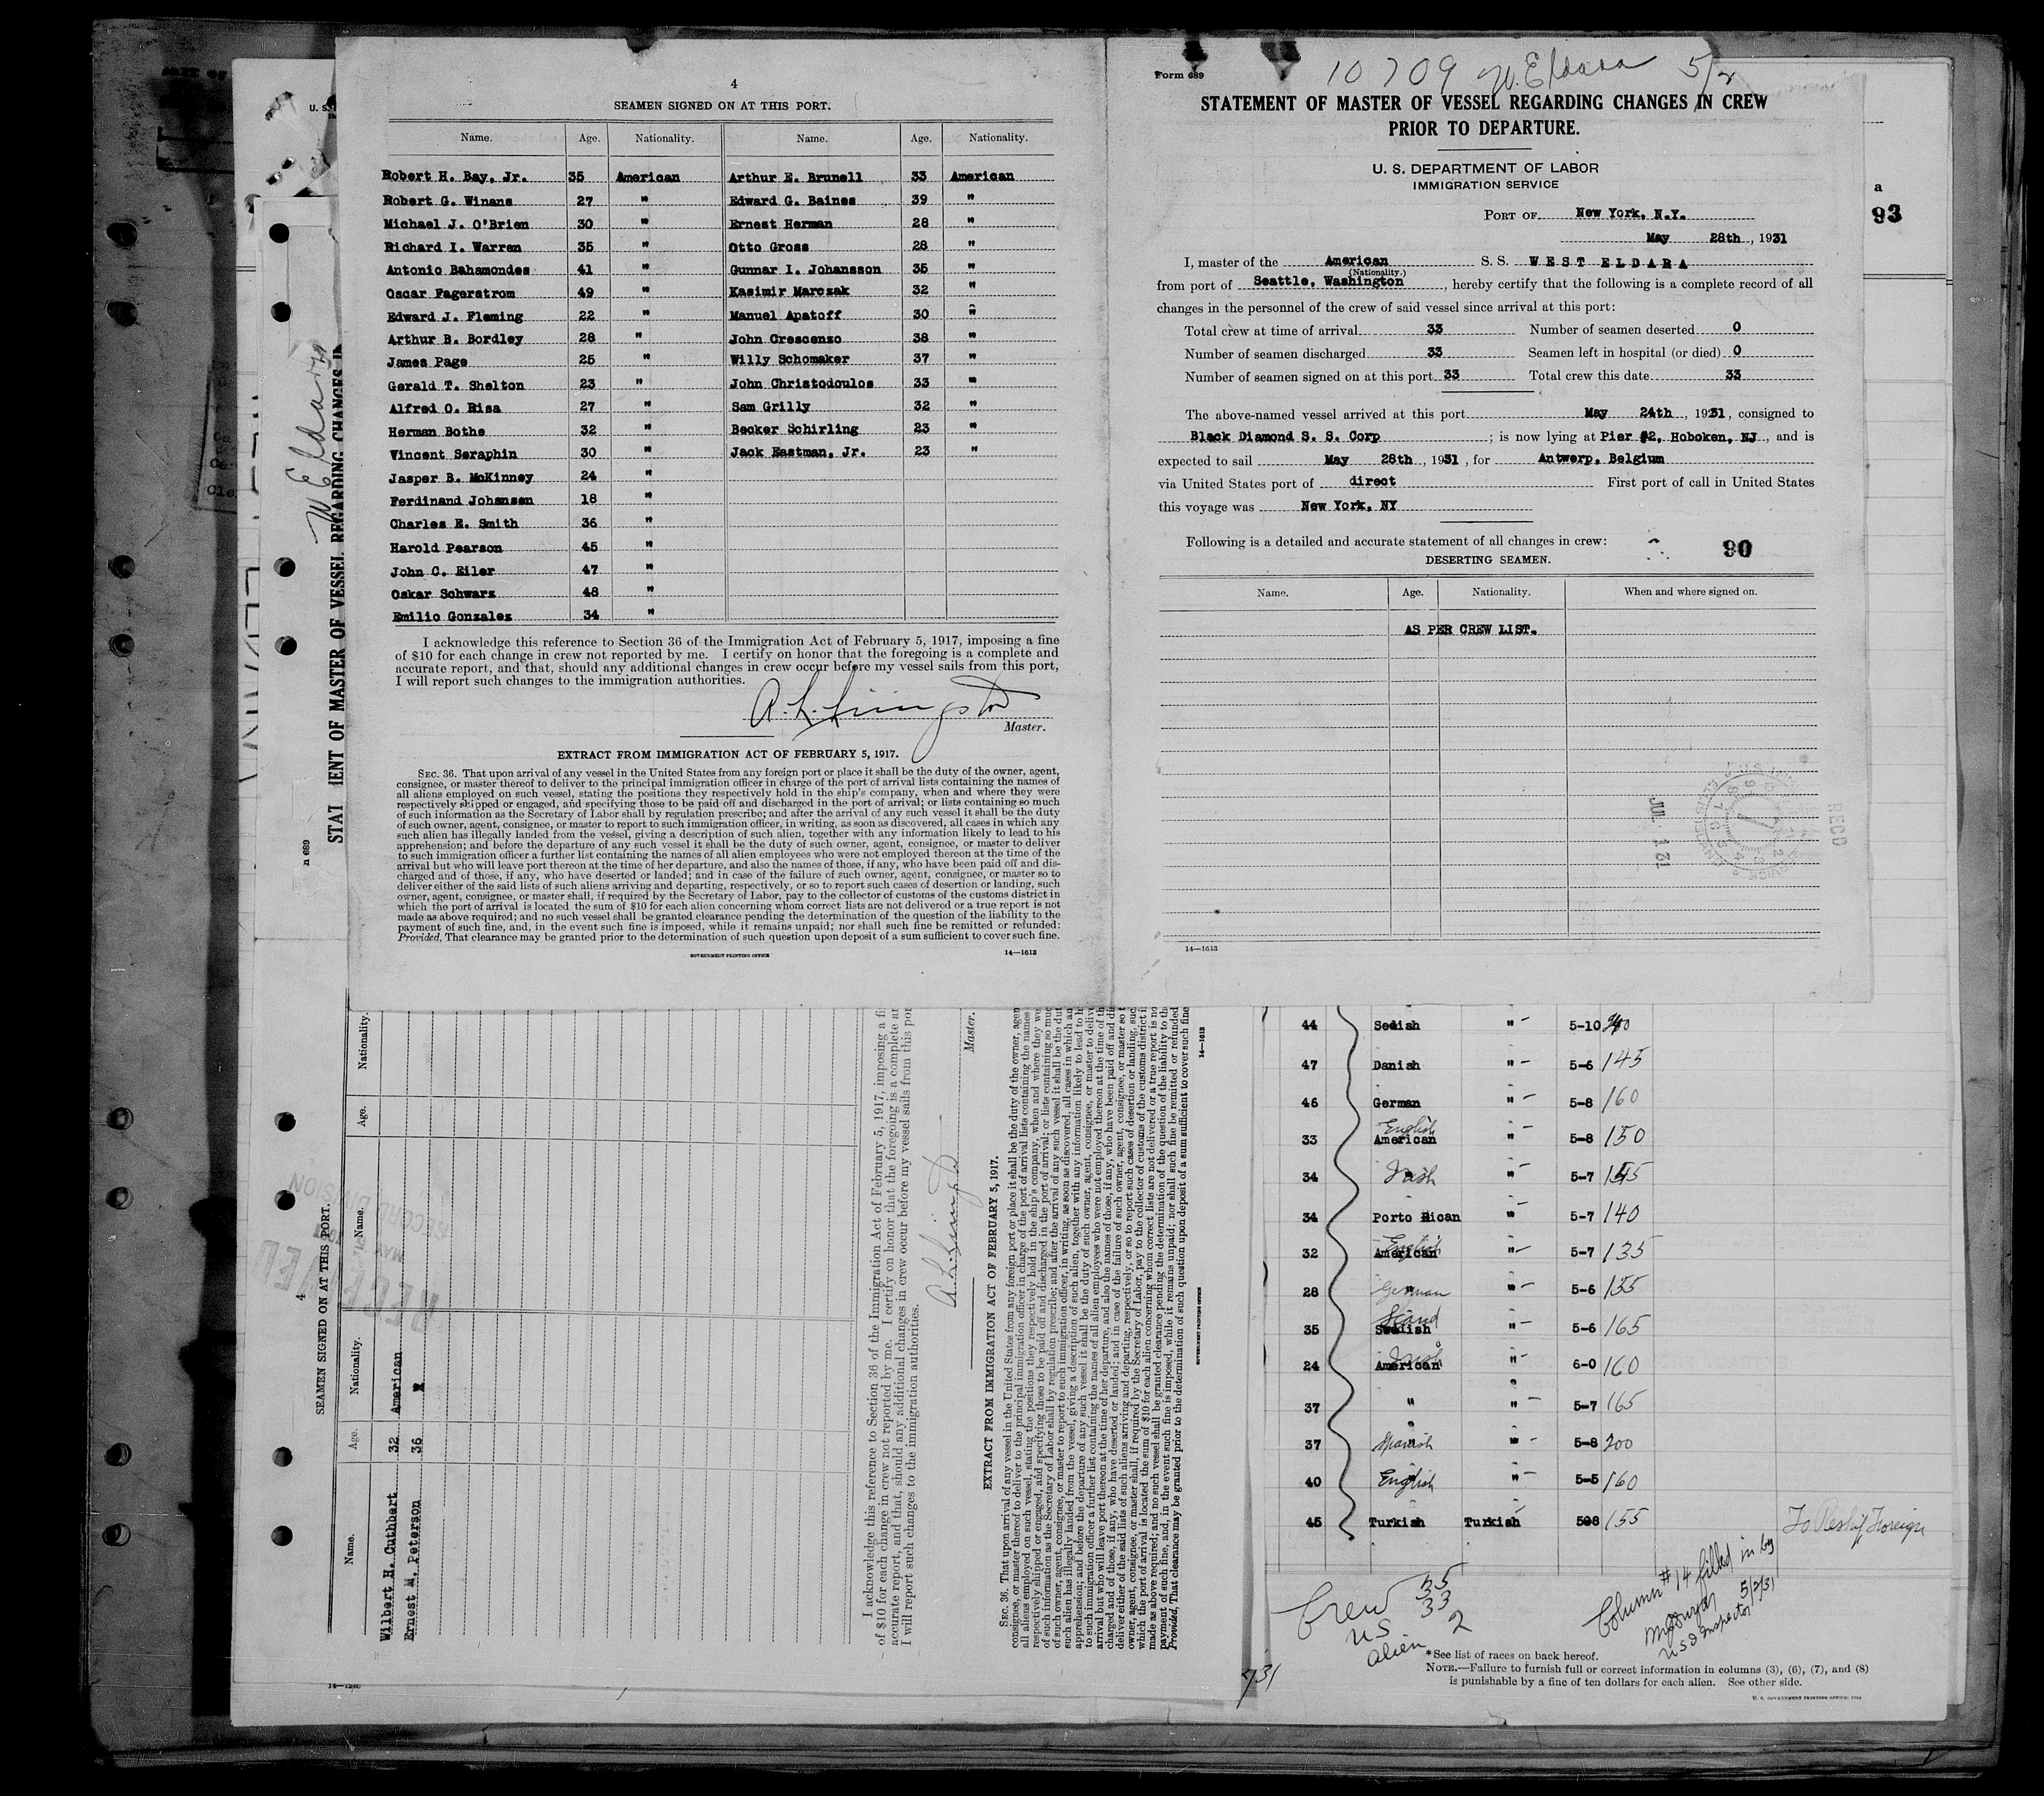 4
SEAMEN SIGNED ON AT THIS PORT.
Name. Age. Nationality. Name. Age. Nationality.
Robert H. Bay, Jr. 35 American Arthur E. Brunell 33 American
Robert G. Winans 27 " Edward G. Baines 39 "
Michael J. O'Brien 30 " Ernest Herman 28 "
Richard I. Warren 35 " Otto Gross 28 "
Antonio Bahamondes 41 " Gunnar I. Johansson 35 "
Oscar Fagerstrom 49 " Kasimir Marczak 32 "
Edward J. Fleming 22 " Manuel Apatoff 30 "
Arthur B. Bordley 28 " John Crescenzo 38 "
James Page 25 " Willy Schomaker 37 "
Gerald T. Shelton 23 " John Christodoulos 33 "
Alfred O. Risa 27 " Sam Grilly 32 "
Herman Bothe 32 " Becker Schirling 23 "
Vincent Seraphin 30 " Jack Eastman, Jr. 23 "
Jasper B. McKinney 24 "
Ferdinand Johansen 18 "
Charles E. Smith 36 "
Harold Pearson 45 "
John C. Eiler 47 "
Oskar Schwarz 48 "
Emilio Gonzalez 34 "
I acknowledge this reference to Section 36 of the Immigration Act of February 5, 1917, imposing a fine
of $10 for each change in crew not reported by me. I certify on honor that the foregoing is a complete and
accurate report, and that, should any additional changes in crew occur before my vessel sails from this port,
I will report such changes to the immigration authorities.
A. L. Livingston
Master.
EXTRACT FROM IMMIGRATION ACT OF FEBRUARY 5, 1917.
SEC. 36. That upon arrival of any vessel in the United States from any foreign port or place it shall be the duty of the owner, agent,
consignee, or master thereof to deliver to the principal immigration officer in charge of the port of arrival lists containing the names of
all aliens employed on such vessel, stating the positions they respectively hold in the ship's company, when and where they were
respectively shipped or engaged, and specifying those to be paid off and discharged in the port of arrival; or lists containing so much
of such information as the Secretary of Labor shall by regulation prescribe; and after the arrival of any such vessel it shall be the duty
of such owner, agent, consignee, or master to report to such immigration officer, in writing, as soon as discovered, all cases in which any
such alien has illegally landed from the vessel, giving a description of such alien, together with any information likely to lead to his
apprehension; and before the departure of any such vessel it shall be the duty of such owner, agent, consignee, or master to deliver
to such immigration officer a further list containing the names of all alien employees who were not employed thereon at the time of the
arrival but who will leave port thereon at the time of her departure, and also the names of those, if any, who have been paid off and dis-
charged and of those, if any, who have deserted or landed; and in case of the failure of such owner, agent, consignee, or master so to
deliver either of the said lists of such aliens arriving and departing, respectively, or so to report such cases of desertion or landing, such
owner, agent, consignee, or master shall, if required by the Secretary of Labor, pay to the collector of customs of the customs district in
which the port of arrival is located the sum of $10 for each alien concerning whom correct lists are not delivered or a true report is not
made as above required; and no such vessel shall be granted clearance pending the determination of the question of the liability to the
payment of such fine, and, in the event such fine is imposed, while it remains unpaid; nor shall such fine be remitted or refunded:
Provided, That clearance may be granted prior to the determination of such question upon deposit of a sum sufficient to cover such fine.
GOVERNMENT PRINTING OFFICE 14—1613
Form 689
10709 W. Eldara 5/2
STATEMENT OF MASTER OF VESSEL REGARDING CHANGES IN CREW
PRIOR TO DEPARTURE.
U. S. DEPARTMENT OF LABOR
IMMIGRATION SERVICE
PORT OF New York, N.Y.
May 28th, 1931
I, master of the American S. S. WEST ELDARA
(Nationality.)
from port of Seattle, Washington, hereby certify that the following is a complete record of all
changes in the personnel of the crew of said vessel since arrival at this port:
Total crew at time of arrival 33 Number of seamen deserted 0
Number of seamen discharged 33 Seamen left in hospital (or died) 0
Number of seamen signed on at this port 33 Total crew this date 33
The above-named vessel arrived at this port May 24th, 1931, consigned to
Black Diamond S. S. Corp ; is now lying at Pier #2, Hoboken, NJ, and is
expected to sail May 28th, 1931, for Antwerp, Belgium
via United States port of direct First port of call in United States
this voyage was New York, NY
Following is a detailed and accurate statement of all changes in crew:
90
DESERTING SEAMEN.
Name. Age. Nationality. When and where signed on.
AS PER CREW LIST.
RECD
14—1613
a
93
W Eldara
STAT
MENT OF MASTER OF VESSEL REGARDING CHANGES
n 689
4
SEAMEN SIGNED ON AT THIS PORT.
Name. Age. Nationality. Name. Age. Nationality.
Wilbert H. Cuthbert 32 American
Ernest M. Peterson 36 "
I acknowledge this reference to Section 36 of the Immigration Act of February 5, 1917, imposing a fi
of $10 for each change in crew not reported by me. I certify on honor that the foregoing is a complete an
accurate report, and that, should any additional changes in crew occur before my vessel sails from this por
I will report such changes to the immigration authorities.
A. L. Livingston
Master.
EXTRACT FROM IMMIGRATION ACT OF FEBRUARY 5, 1917.
14—1613
GOVERNMENT PRINTING OFFICE
44 Sedish " 5-10
47 Danish " 5-6 145
46 German " 5-8 160
English
33 American " 5-8 150
34 Irish " 5-7
34 Porto Rican " 5-7 140
English
32 American " 5-7 135
28 German " 5-6 135
Scand
35 Swedish " 5-6 165
Irish
24 American " 6-0 160
37 " " 5-7 165
37 Spanish " 5-8 200
40 English " 5-5 160
45 Turkish Turkish 508 155 To Reship Foreign
Crew 35
US 33
Alien 2
Column #14 filled in by
5/2/31
U S I Inspector
*See list of races on back hereof.
NOTE.—Failure to furnish full or correct information in columns (3), (6), (7), and (8)
is punishable by a fine of ten dollars for each alien. See other side.
U. S. GOVERNMENT PRINTING OFFICE